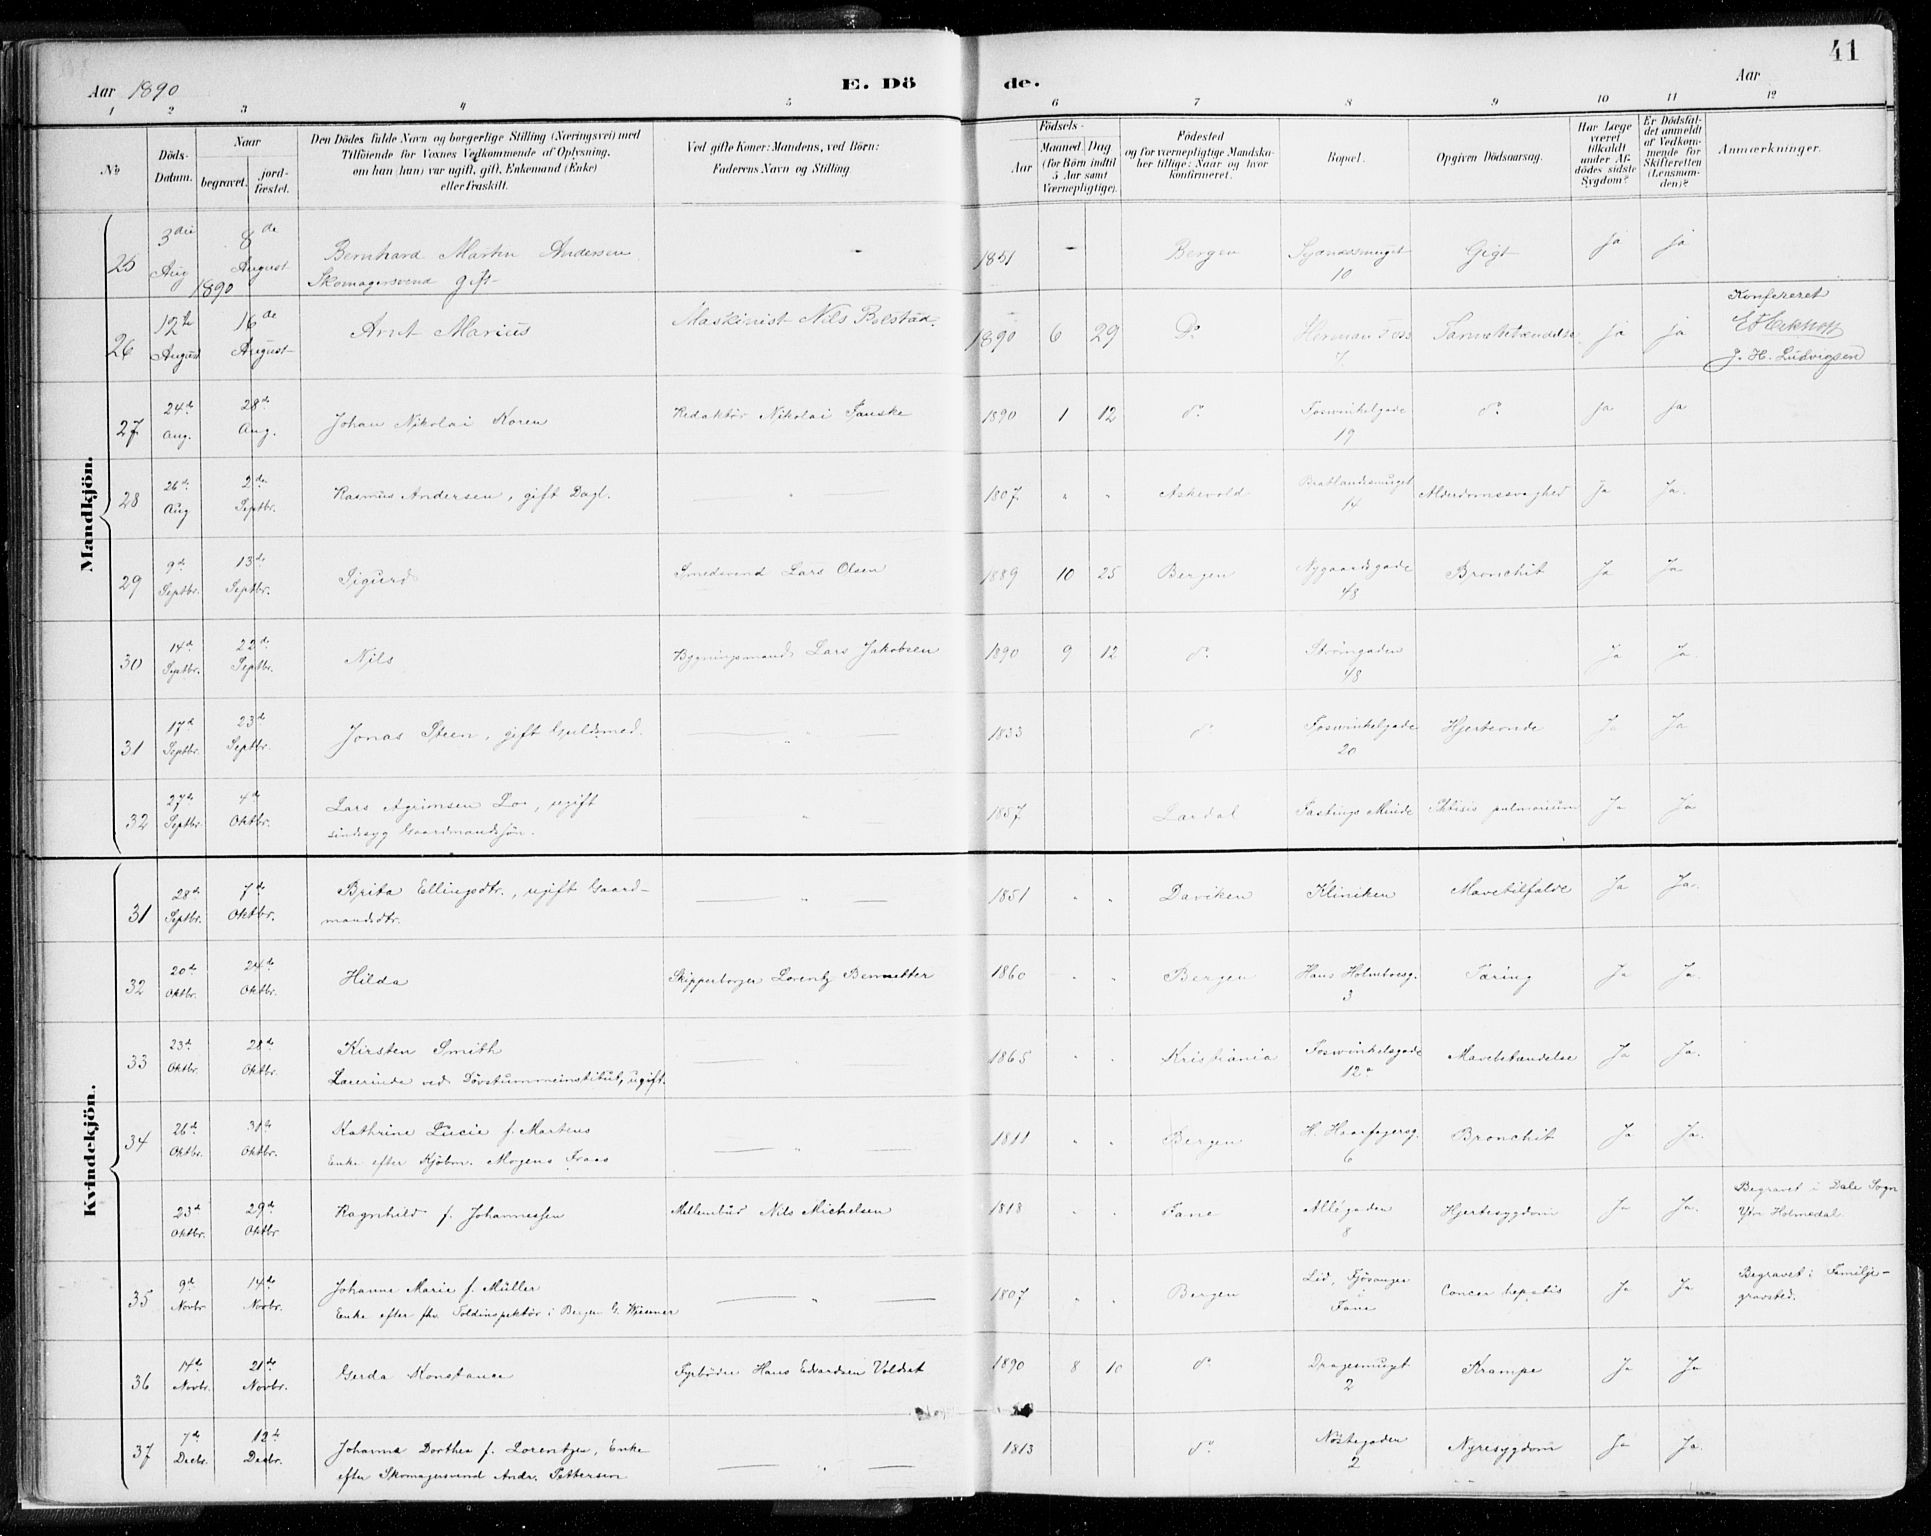 41
Aar 1890
E. Dö
de.
Aar
1 2 3 4 5 6 7 8 9 10 11 12
No
Döds-Datum.
Naar
begravet.
jord-fæstet.
Den Dödes fulde Navn og borgerlige Stilling (Næringsvei) med
Tilföiende for Voxnes Vedkommende af Oplysning,
om han (hun) var ugift, gift, Enkemand (Enke)
eller fraskilt.
Ved gifte Koner: Mandens, ved Börn:
Faderens Navn og Stilling.
Födsels-
Aar
Maaned. Dag
(for Börn indtil
5 Aar samt
Værnepligtige).
Födested
og for værnepligtige Mandska-
ber tillige: Naar og hvor
konfirmeret.
Bopæl.
Opgiven Dödsaarsag.
Har Læge
været
tilkaldt
under Af-
dödes sidste
Sygdom?
Er Dödsfal-
det anmeldt
af Vedkom-
mende for
Skifteretten
(Lensman-
den)?
Anmærkninger.
Mandkjön.
25 3die Aug 1890 8de August Bernhard Martin Andersen 1851 Bergen Gigt ja ja
Skomagersvend gift 10
26 12te August 16de August Arnt Marius Maskinist Nils Bolstad. 1890 6 29 Do 7 Tarmbetændelse ja ja Konfereret
J. H. Ludvigsen
27 24de Aug. 28de Aug. Johan Nikolai Koren Redaktör Nikolai Fanske 1890 1 12 do Foswinkelgade 19 do ja ja
28 26de Aug 2de Septbr. Rasmus Andersen, gift Dagl. 1807 " " Askevold Bratlandsmuget 14 Alderdomssvaghed Ja Ja.
29 9de Septbr. 13de Septbr. Sigurd Smedsvend Lars Olsen 1889 10 25 Bergen Nygaardsgade 48 Bronchit Ja Ja
30 14d Septbr. 22de Septbr. Nils Bygningsmand Lars Jakobsen 1890 9 12 do Strömgaden 48 Ja Ja.
31 17d Septbr. 23de Septbr. Jonas Steen, gift Guldsmed. " 1833 do Foswinkelgade 20 Hjerteonde Ja Ja
32 27de Septbr. 4de Oktbr. Lars Agrimsen Loe, ugift " 1857 Lærdal Fastings Minde Phtisis pulmonum Ja Ja
sindssyg Gaardmandssøn.
Kvindekjön.
31 28de Septbr. 7de Oktbr. Brita Ellingsdtr., ugift Gaard- " 1851 " " Daviken Kliniken Mavetilfælde Ja Ja.
mandsdtr.
32 20de Oktbr. 24de Oktbr. Hilda Skipperborger Lorentz Bennetter 1860 " " Bergen Hans Holmboesg. 3 Tæring Ja Ja.
33 23de Oktbr. 28de Oktbr. Kirsten Smith " 1865 " " Kristiania Foswinkelsgade 12a Mavebetændelse Ja Ja.
Lærerinde ved Dövstummeinstitut, ugift.
34 26de Oktbr. 31te Oktbr. Kathrine Lucie f. Martens " 1811 " " Bergen H. Haarfagersg. 6 Bronchit Ja Ja.
Enke efter Kjöbm. Mogens Fraas
23d Oktbr. 29de Oktbr. Ragnhild f. Johannessen Mellembud Nils Michelsen 1818 " " Fane Allégaden 8 Hjertesygdom Ja Ja. Begravet i Dale Sogn
Ytre Holmedal.
35 9d Novbr. 14de Novbr. Johanne Marie f. Müller " 1807 " " Bergen Lid, Fjösanger Fane Cancer hepatis Ja Ja Begravet i Familje-
gravsted.
Enke efter fhv. Toldinspektör i Bergen G. Wiesener
36 14de Novbr. 21de Novbr. Gerda Konstance Fyrböder Hans Edvardsen Voldset 1890 8 10 do Dragesmuget 2 Krampe Ja Ja
37 7de Decbr. 12te Decbr. Johanna Dorthea f. Lorentzen, Enke " 1813 do Nöstegaden 2 Nyresygdom Ja Ja.
efter Skomagersvend Andr. Pettersen